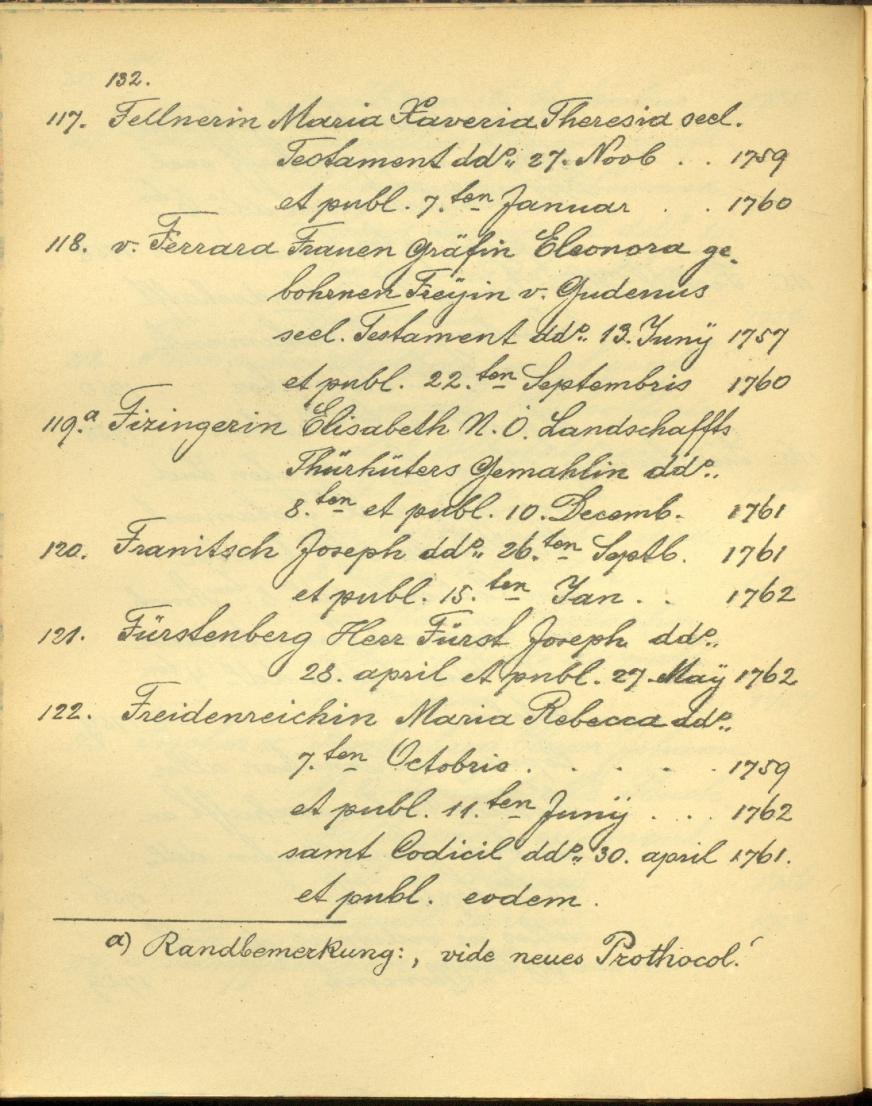 132.
117. Fellnerin Maria Xaveria Theresia seel.
Testament ddo. 27. Novb . . 1759
et publ. 7.ten Januar . . 1760
118. v. Ferrara Frauen Gräfin Eleonora ge-
bohrnen Freÿin v. Gudenus
seel. Testament ddo. 13. Junÿ 1757
et publ. 22.ten Septembris 1760
119.a Fizingerin Elisabeth N. Ö. Landschaffts
Thürhüters Gemahlin ddo.
8.ten et publ. 10. Decemb. 1761
120. Franitsch Joseph ddo. 26.ten Septb. 1761
et publ. 15.ten Jan . . 1762
121. Fürstenberg Herr Fürst Joseph ddo.
28. april et publ. 27. Maÿ 1762
122. Freidenreichin Maria Rebecca ddo.
7.ten Octobris . . . . . 1759
et publ. 11.ten Junÿ . . . 1762
samt Codicil ddo. 30. april 1761.
et publ. eodem.
a) Randbemerkung: , vide neues Prothocol.'